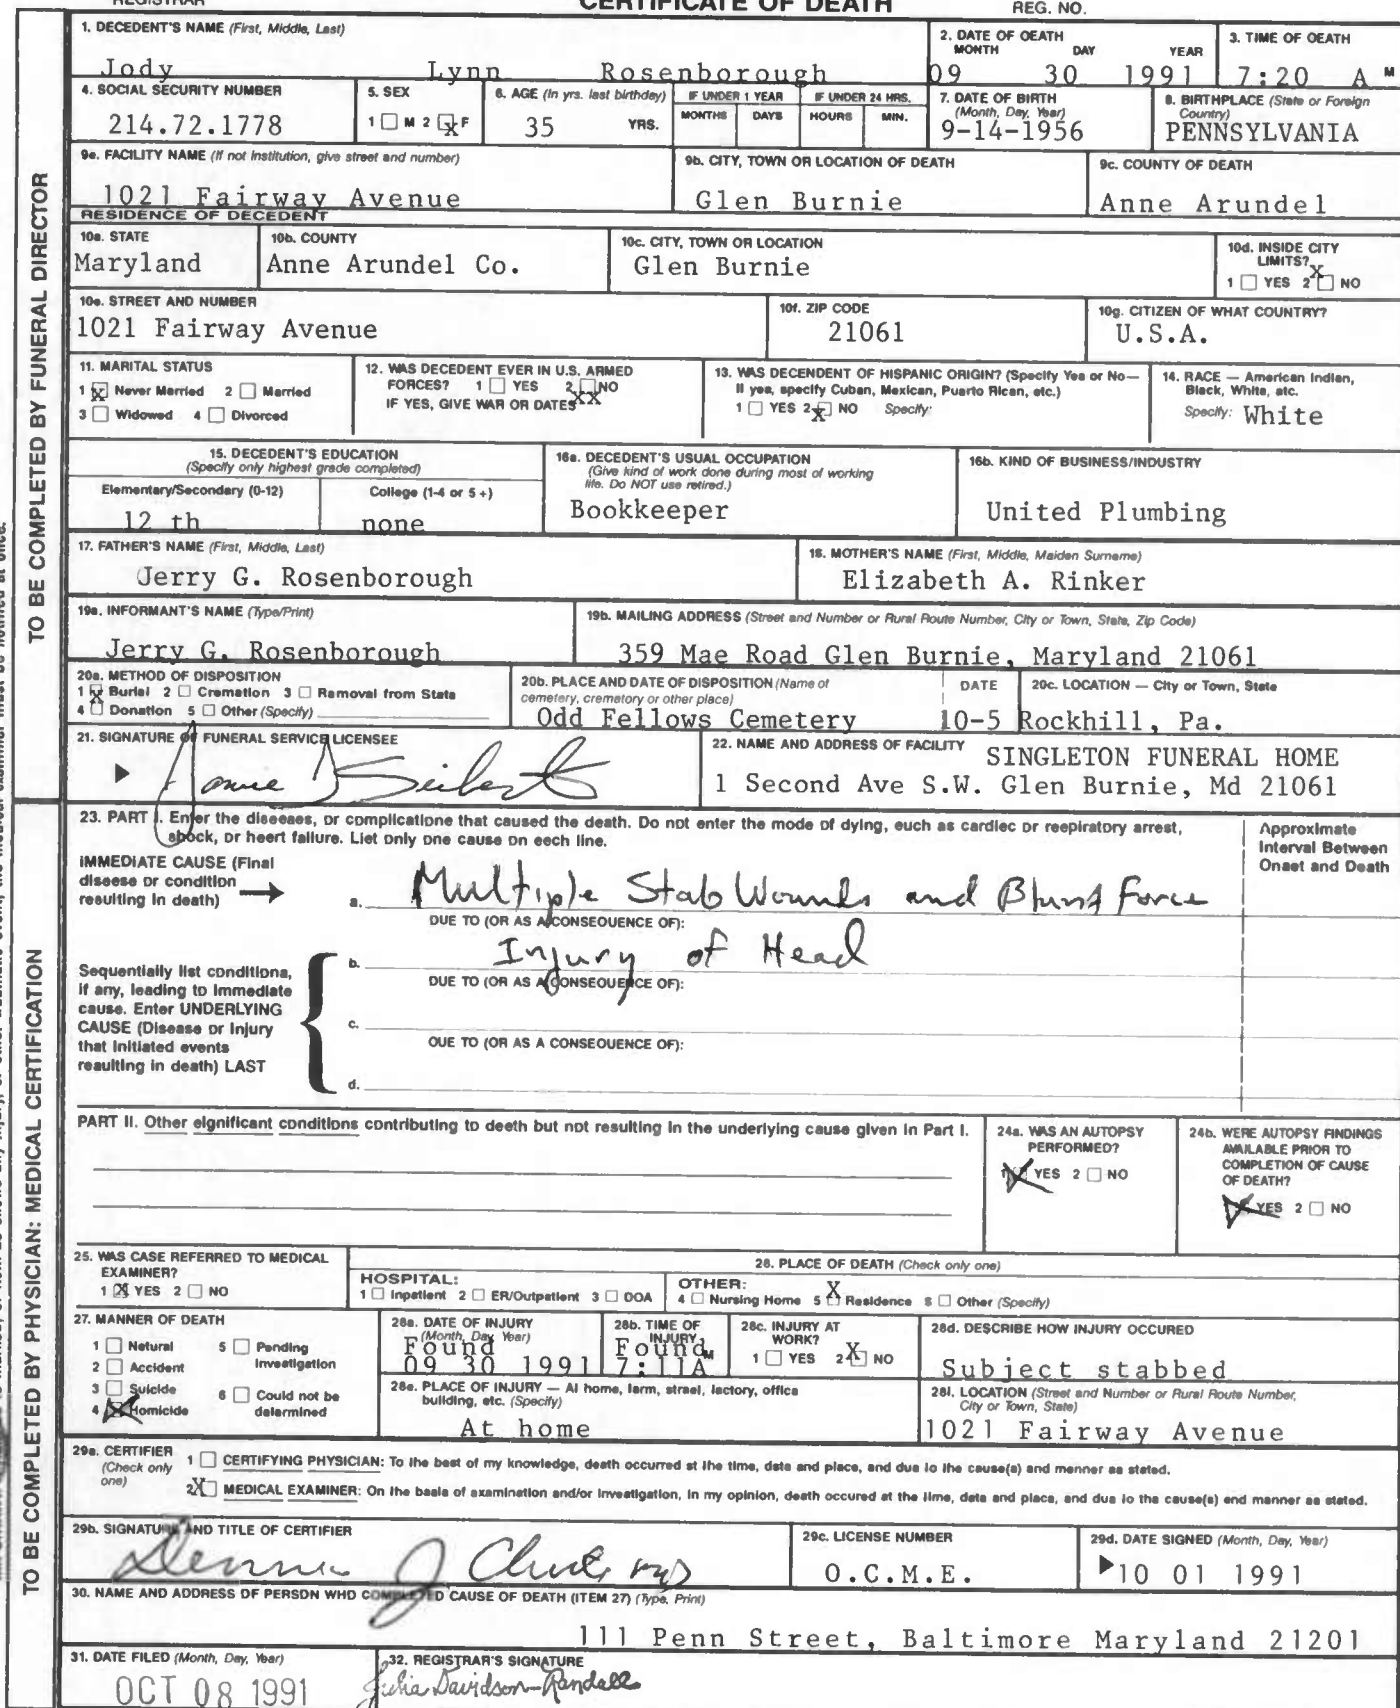 CERTIFICATE OF DEATH
REGISTRAR REG. NO.
1. DECEDENT'S NAME (First, Middle, Last)
Jody Lynn Rosenborough
2. DATE OF DEATH
MONTH DAY YEAR
09 30 1991
3. TIME OF DEATH
7:20 A M
4. SOCIAL SECURITY NUMBER
214.72.1778
5. SEX
1 M 2 X F
6. AGE (In yrs. last birthday)
35 YRS.
IF UNDER 1 YEAR
MONTHS DAYS
IF UNDER 24 HRS.
HOURS MIN.
7. DATE OF BIRTH
(Month, Day, Year)
9-14-1956
8. BIRTHPLACE (State or Foreign
Country)
PENNSYLVANIA
9a. FACILITY NAME (If not institution, give street and number)
1021 Fairway Avenue
9b. CITY, TOWN OR LOCATION OF DEATH
Glen Burnie
9c. COUNTY OF DEATH
Anne Arundel
RESIDENCE OF DECEDENT
10a. STATE
Maryland
10b. COUNTY
Anne Arundel Co.
10c. CITY, TOWN OR LOCATION
Glen Burnie
10d. INSIDE CITY
LIMITS?
1 YES 2 X NO
10e. STREET AND NUMBER
1021 Fairway Avenue
10f. ZIP CODE
21061
10g. CITIZEN OF WHAT COUNTRY?
U.S.A.
11. MARITAL STATUS
1 X Never Married 2 Married
3 Widowed 4 Divorced
12. WAS DECEDENT EVER IN U.S. ARMED
FORCES? 1 YES 2 NO
IF YES, GIVE WAR OR DATES XX
13. WAS DECENDENT OF HISPANIC ORIGIN? (Specify Yes or No—
If yes, specify Cuban, Mexican, Puerto Rican, etc.)
1 YES 2 X NO Specify:
14. RACE — American Indian,
Black, White, etc.
Specify: White
15. DECEDENT'S EDUCATION
(Specify only highest grade completed)
Elementary/Secondary (0-12) College (1-4 or 5+)
12 th none
16a. DECEDENT'S USUAL OCCUPATION
(Give kind of work done during most of working
life. Do NOT use retired.)
Bookkeeper
16b. KIND OF BUSINESS/INDUSTRY
United Plumbing
17. FATHER'S NAME (First, Middle, Last)
Jerry G. Rosenborough
18. MOTHER'S NAME (First, Middle, Maiden Surname)
Elizabeth A. Rinker
19a. INFORMANT'S NAME (Type/Print)
Jerry G. Rosenborough
19b. MAILING ADDRESS (Street and Number or Rural Route Number, City or Town, State, Zip Code)
359 Mae Road Glen Burnie, Maryland 21061
20a. METHOD OF DISPOSITION
1 X Burial 2 Cremation 3 Removal from State
4 Donation 5 Other (Specify)
20b. PLACE AND DATE OF DISPOSITION (Name of
cemetery, crematory or other place)
Odd Fellows Cemetery
DATE
10-5
20c. LOCATION — City or Town, State
Rockhill, Pa.
21. SIGNATURE OF FUNERAL SERVICE LICENSEE
22. NAME AND ADDRESS OF FACILITY SINGLETON FUNERAL HOME
1 Second Ave S.W. Glen Burnie, Md 21061
23. PART I. Enter the diseases, or complications that caused the death. Do not enter the mode of dying, such as cardiac or respiratory arrest,
shock, or heart failure. List only one cause on each line.
Approximate
Interval Between
Onset and Death
IMMEDIATE CAUSE (Final
disease or condition
resulting in death)
a. Multiple Stab Wounds and Blunt Force
DUE TO (OR AS A CONSEQUENCE OF):
b. Injury of Head
DUE TO (OR AS A CONSEQUENCE OF):
Sequentially list conditions,
if any, leading to immediate
cause. Enter UNDERLYING
CAUSE (Disease or injury
that initiated events
resulting in death) LAST
c.
DUE TO (OR AS A CONSEQUENCE OF):
d.
PART II. Other significant conditions contributing to death but not resulting in the underlying cause given in Part I.
24a. WAS AN AUTOPSY
PERFORMED?
1 X YES 2 NO
24b. WERE AUTOPSY FINDINGS
AVAILABLE PRIOR TO
COMPLETION OF CAUSE
OF DEATH?
1 X YES 2 NO
25. WAS CASE REFERRED TO MEDICAL
EXAMINER?
1 X YES 2 NO
26. PLACE OF DEATH (Check only one)
HOSPITAL:
1 Inpatient 2 ER/Outpatient 3 DOA
OTHER:
4 Nursing Home 5 X Residence 6 Other (Specify)
27. MANNER OF DEATH
1 Natural 5 Pending
Investigation
2 Accident
3 Suicide 6 Could not be
determined
4 X Homicide
28a. DATE OF INJURY
(Month, Day, Year)
Found
09 30 1991
28b. TIME OF
INJURY
Found M
7:11A
28c. INJURY AT
WORK?
1 YES 2 X NO
28d. DESCRIBE HOW INJURY OCCURED
Subject stabbed
28e. PLACE OF INJURY — At home, farm, street, factory, office
building, etc. (Specify)
At home
28f. LOCATION (Street and Number or Rural Route Number,
City or Town, State)
1021 Fairway Avenue
29a. CERTIFIER
(Check only
one)
1 CERTIFYING PHYSICIAN: To the best of my knowledge, death occurred at the time, date and place, and due to the cause(s) and manner as stated.
2 X MEDICAL EXAMINER: On the basis of examination and/or investigation, in my opinion, death occured at the time, date and place, and due to the cause(s) and manner as stated.
29b. SIGNATURE AND TITLE OF CERTIFIER
29c. LICENSE NUMBER
O.C.M.E.
29d. DATE SIGNED (Month, Day, Year)
10 01 1991
30. NAME AND ADDRESS OF PERSON WHO COMPLETED CAUSE OF DEATH (ITEM 27) (Type, Print)
111 Penn Street, Baltimore Maryland 21201
31. DATE FILED (Month, Day, Year)
OCT 08 1991
32. REGISTRAR'S SIGNATURE
Julia Davidson-Randall
TO BE COMPLETED BY FUNERAL DIRECTOR
TO BE COMPLETED BY PHYSICIAN: MEDICAL CERTIFICATION